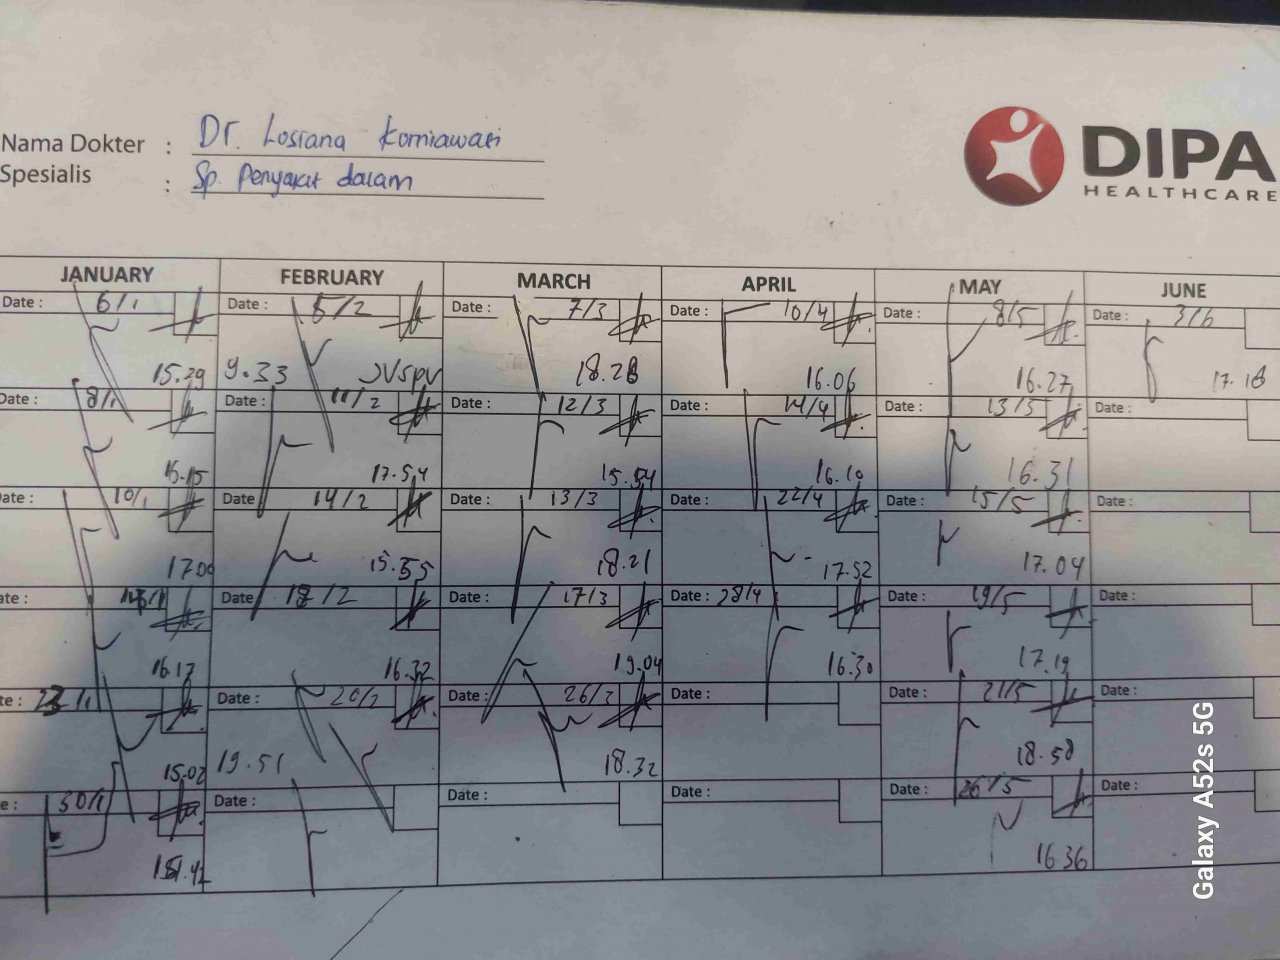 Nama Dokter : Dr. Losiana Korniawati
Spesialis : Sp. Penyakit dalam
DIPA
HEALTHCARE
JANUARY FEBRUARY MARCH APRIL MAY JUNE
Date : 6/1 Date : 5/2 Date : 7/3 Date : 10/4 Date : 8/5 Date : 3/6
15.29 9.33 18.28 16.06 16.27 17.18
Date : 8/1 Date : 11/2 Date : 12/3 Date : 14/4 Date : 13/5 Date :
17.54 15.54 16.10 16.31
ate : 10/1 Date 14/2 Date : 13/3 Date : 22/4 Date : 15/5 Date :
17.00 15.35 18.21 17.52 17.04
ate : Date 18/2 Date : 17/3 Date : 28/4 Date : 19/5 Date :
16.32 19.04 16.30 17.19
te : 23/1 Date : 20/2 Date : 26/3 Date : Date : 21/5 Date :
15.02 19.51 18.32 18.58
e : 30/1 Date : Date : Date : Date : 26/5 Date :
16.36
Galaxy A52s 5G